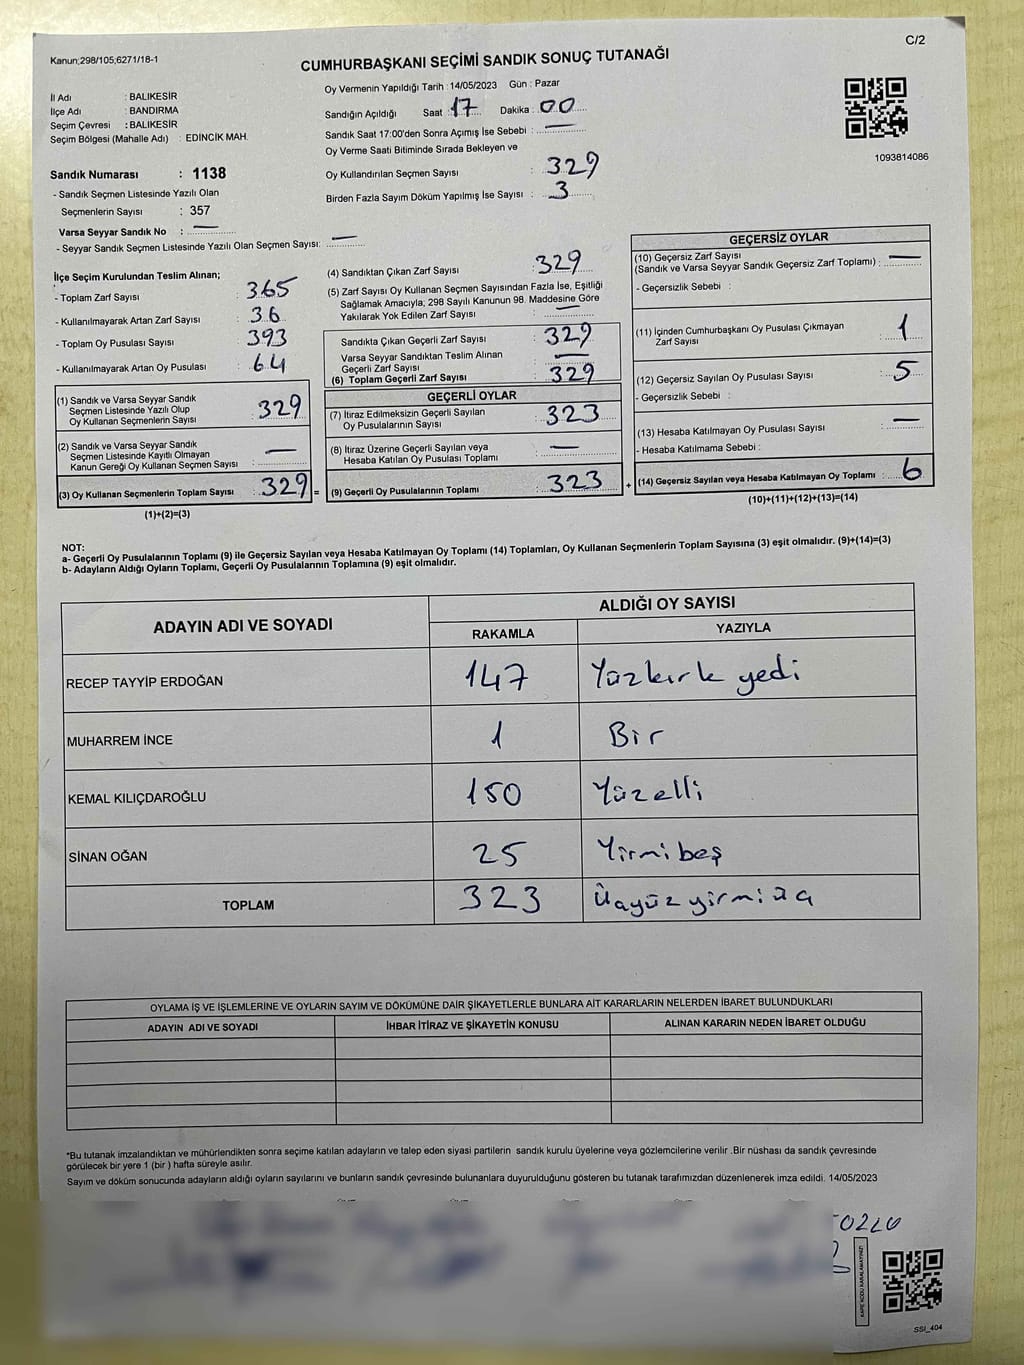 C/2
Kanun;298/105,6271/18-1
CUMHURBAŞKANI SEÇİMİ SANDIK SONUÇ TUTANAĞI
İl Adı : BALIKESİR
İlçe Adı : BANDIRMA
Seçim Çevresi : BALIKESİR
Seçim Bölgesi (Mahalle Adı) : EDİNCİK MAH.
Sandık Numarası : 1138
- Sandık Seçmen Listesinde Yazılı Olan
Seçmenlerin Sayısı : 357
Varsa Seyyar Sandık No : —
- Seyyar Sandık Seçmen Listesinde Yazılı Olan Seçmen Sayısı: —
Oy Vermenin Yapıldığı Tarih : 14/05/2023 Gün : Pazar
Sandığın Açıldığı Saat : 17 Dakika : 00
Sandık Saat 17:00'den Sonra Açımış İse Sebebi : —
Oy Verme Saati Bitiminde Sırada Bekleyen ve
Oy Kullandırılan Seçmen Sayısı : 329
Birden Fazla Sayım Döküm Yapılmış İse Sayısı : 3
1093814086
İlçe Seçim Kurulundan Teslim Alınan;
- Toplam Zarf Sayısı : 365
- Kullanılmayarak Artan Zarf Sayısı : 36
- Toplam Oy Pusulası Sayısı : 393
- Kullanılmayarak Artan Oy Pusulası : 64
(1) Sandık ve Varsa Seyyar Sandık
Seçmen Listesinde Yazılı Olup
Oy Kullanan Seçmenlerin Sayısı : 329
(2) Sandık ve Varsa Seyyar Sandık
Seçmen Listesinde Kayıtlı Olmayan
Kanun Gereği Oy Kullanan Seçmen Sayısı : —
(3) Oy Kullanan Seçmenlerin Toplam Sayısı : 329 =
(1)+(2)=(3)
(4) Sandıktan Çıkan Zarf Sayısı : 329
(5) Zarf Sayısı Oy Kullanan Seçmen Sayısından Fazla İse, Eşitliği
Sağlamak Amacıyla; 298 Sayılı Kanunun 98. Maddesine Göre
Yakılarak Yok Edilen Zarf Sayısı : —
Sandıkta Çıkan Geçerli Zarf Sayısı : 329
Varsa Seyyar Sandıktan Teslim Alınan
Geçerli Zarf Sayısı : —
(6) Toplam Geçerli Zarf Sayısı : 329
GEÇERLİ OYLAR
(7) İtiraz Edilmeksizin Geçerli Sayılan
Oy Pusulalarının Sayısı : 323
(8) İtiraz Üzerine Geçerli Sayılan veya
Hesaba Katılan Oy Pusulası Toplamı : —
(9) Geçerli Oy Pusulalarının Toplamı : 323 +
GEÇERSİZ OYLAR
(10) Geçersiz Zarf Sayısı
(Sandık ve Varsa Seyyar Sandık Geçersiz Zarf Toplamı) : —
- Geçersizlik Sebebi :
(11) İçinden Cumhurbaşkanı Oy Pusulası Çıkmayan
Zarf Sayısı : 1
(12) Geçersiz Sayılan Oy Pusulası Sayısı : 5
- Geçersizlik Sebebi :
(13) Hesaba Katılmayan Oy Pusulası Sayısı : —
- Hesaba Katılmama Sebebi :
(14) Geçersiz Sayılan veya Hesaba Katılmayan Oy Toplamı : 6
(10)+(11)+(12)+(13)=(14)
NOT:
a- Geçerli Oy Pusulalarının Toplamı (9) ile Geçersiz Sayılan veya Hesaba Katılmayan Oy Toplamı (14) Toplamları, Oy Kullanan Seçmenlerin Toplam Sayısına (3) eşit olmalıdır. (9)+(14)=(3)
b- Adayların Aldığı Oyların Toplamı, Geçerli Oy Pusulalarının Toplamına (9) eşit olmalıdır.
ADAYIN ADI VE SOYADI ALDIĞI OY SAYISI
RAKAMLA YAZIYLA
RECEP TAYYİP ERDOĞAN 147 Yüzkırk yedi
MUHARREM İNCE 1 Bir
KEMAL KILIÇDAROĞLU 150 Yüzelli
SİNAN OĞAN 25 Yirmibeş
TOPLAM 323 Üçyüz yirmiüç
OYLAMA İŞ VE İŞLEMLERİNE VE OYLARIN SAYIM VE DÖKÜMÜNE DAİR ŞİKAYETLERLE BUNLARA AİT KARARLARIN NELERDEN İBARET BULUNDUKLARI
ADAYIN ADI VE SOYADI İHBAR İTİRAZ VE ŞİKAYETİN KONUSU ALINAN KARARIN NEDEN İBARET OLDUĞU
*Bu tutanak imzalandıktan ve mühürlendikten sonra seçime katılan adayların ve talep eden siyasi partilerin sandık kurulu üyelerine veya gözlemcilerine verilir .Bir nüshası da sandık çevresinde
görülecek bir yere 1 (bir ) hafta süreyle asılır.
Sayım ve döküm sonucunda adayların aldığı oyların sayılarını ve bunların sandık çevresinde bulunanlara duyurulduğunu gösteren bu tutanak tarafımızdan düzenlenerek imza edildi. 14/05/2023
KARE KODU KARALAMAYINIZ!
SSI_404